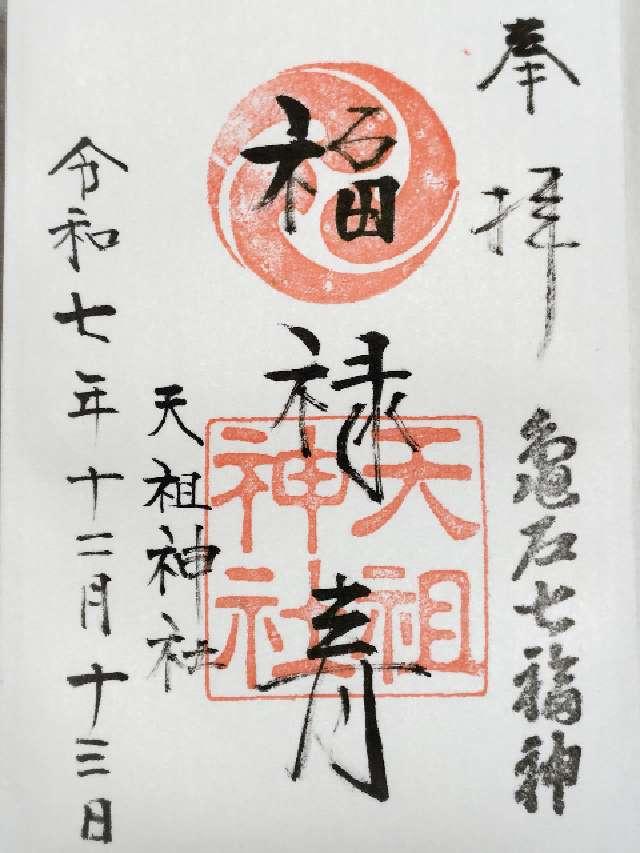 奉拝
亀石七福神
福禄寿
天祖神社
天祖神社
令和七年十二月十三日